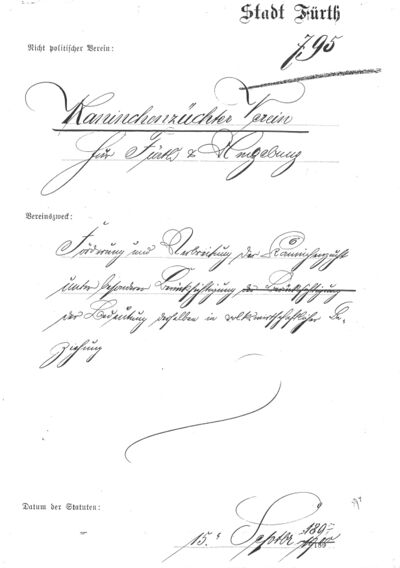 Stadt Fürth
795
Nicht politischer Verein:
Kaninchenzüchter Verein
für Fürth & Umgebung
Vereinszweck:
Förderung und Verbreitung der Kaninchenzucht
unter besonderer Berücksichtigung der Berücksichtigung
der Bedeutung derselben in volkswirtschaftlicher Be-
ziehung
Datum der Statuten:
15. Septbr